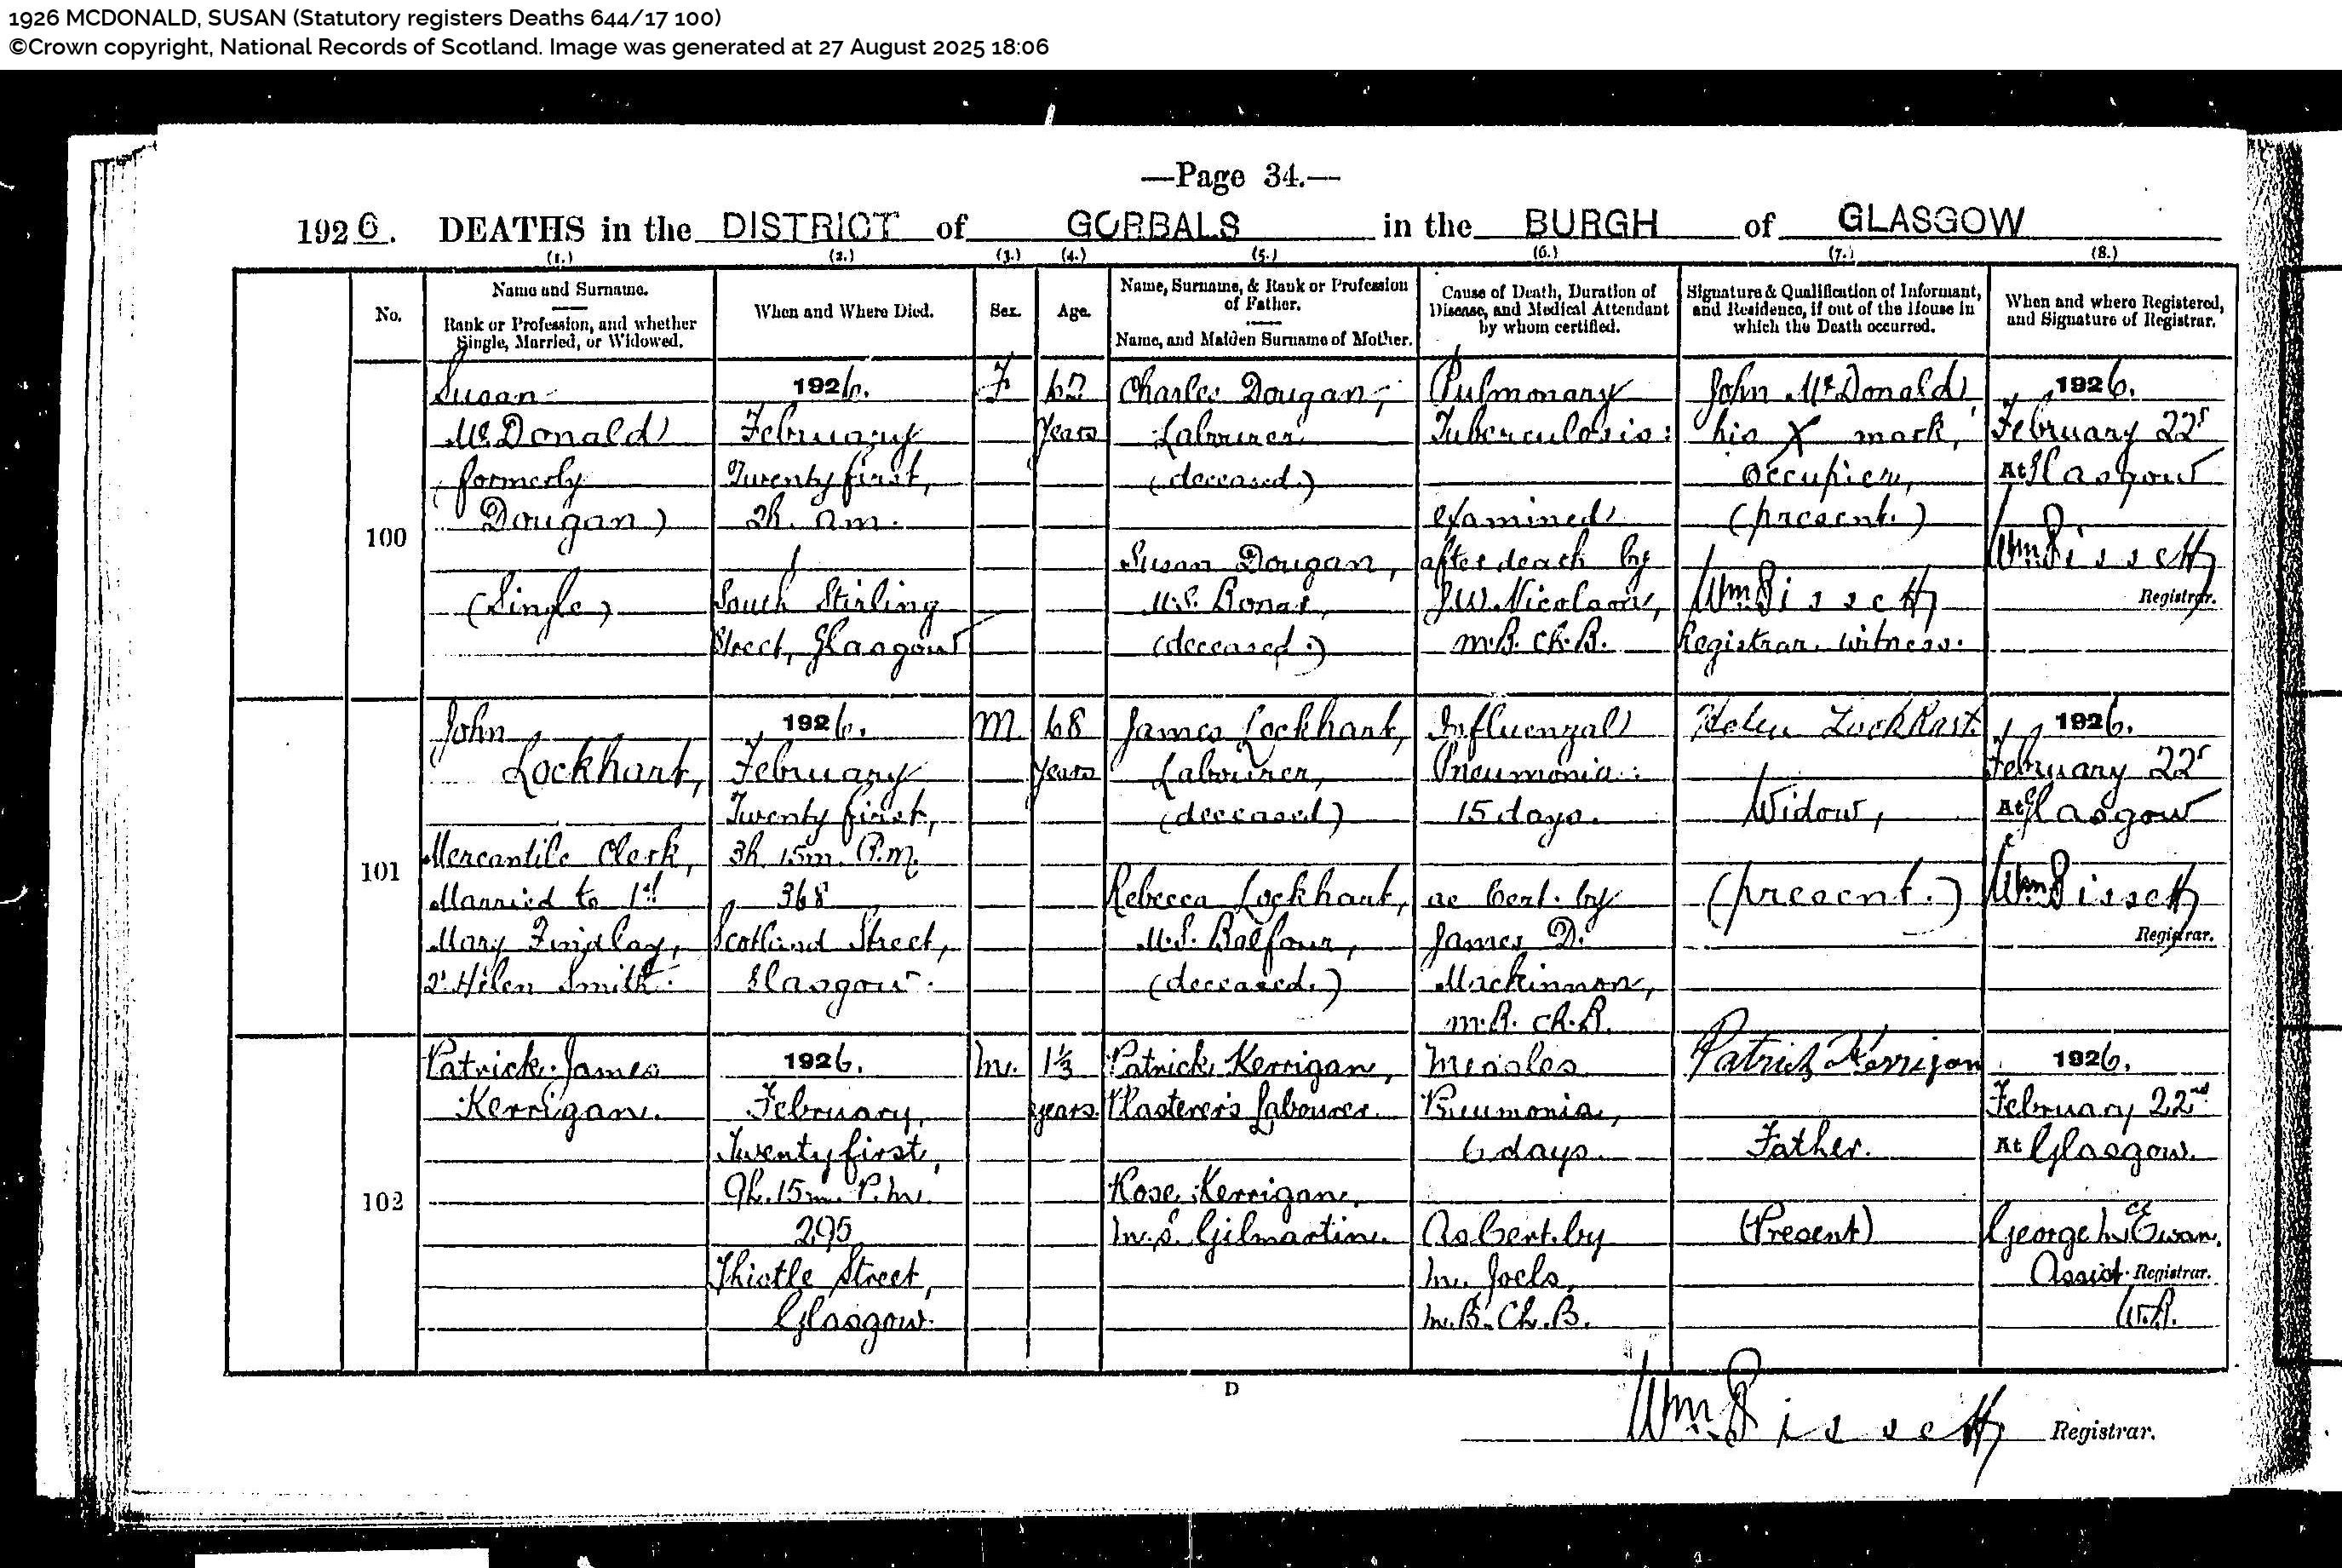 1926 MCDONALD, SUSAN (Statutory registers Deaths 644/17 100)
©Crown copyright, National Records of Scotland. Image was generated at 27 August 2025 18:06
—Page 34.—
1926. DEATHS in the DISTRICT of GORBALS in the BURGH of GLASGOW
(1.) (2.) (3.) (4.) (5.) (6.) (7.) (8.)
No.
Name and Surname.
Rank or Profession, and whether
Single, Married, or Widowed.
When and Where Died.
Sex.
Age.
Name, Surname, & Rank or Profession
of Father.
Name, and Maiden Surname of Mother.
Cause of Death, Duration of
Disease, and Medical Attendant
by whom certified.
Signature & Qualification of Informant,
and Residence, if out of the House in
which the Death occurred.
When and where Registered,
and Signature of Registrar.
100
Susan
McDonald
(formerly
Dougan)
(Single)
1926.
February
Twenty first,
2h. am.
1
South Stirling
Street, Glasgow
F
67
years
Charles Dougan,
Labourer
(deceased.)
Susan Dougan,
M.S. Bonar,
(deceased.)
Pulmonary
Tuberculosis:
examined
after death by
J.W. Nicolson,
M.B. Ch.B.
John McDonald,
his X mark,
Occupier,
(present.)
Wm Bissett
Registrar. witness.
1926.
February 22d
At Glasgow
Wm Bissett
Registrar.
101
John
Lockhart,
Mercantile Clerk,
Married to 1st
Mary Findlay,
2d Helen Smith.
1926.
February
Twenty first,
3h. 15m. P.m.
368
Scotland Street,
Glasgow.
M
68
years
James Lockhart,
Labourer,
(deceased)
Rebecca Lockhart,
M.S. Balfour,
(deceased.)
Influenzal
Pneumonia:
15 days.
as Cert. by
James D.
Mackinnon,
M.B. Ch.B.
Helen Lockhart.
Widow,
(present.)
1926.
February 22d
At Glasgow
Wm Bissett
Registrar.
102
Patrick James
Kerrigan.
1926.
February,
Twenty first,
9h. 15m. P.M.
295
Thistle Street,
Glasgow.
M.
1⅓
years.
Patrick Kerrigan,
Plasterer's Labourer.
Rose Kerrigan,
M.S. Gilmartin.
Measles
Pneumonia,
6 days.
As Cert. by
M. Joels,
M.B. Ch.B.
Patrick Kerrigan
Father.
(Present)
1926.
February 22nd
At Glasgow.
George McEwan.
Assist. Registrar.
W.B.
D
Wm Bissett Registrar.